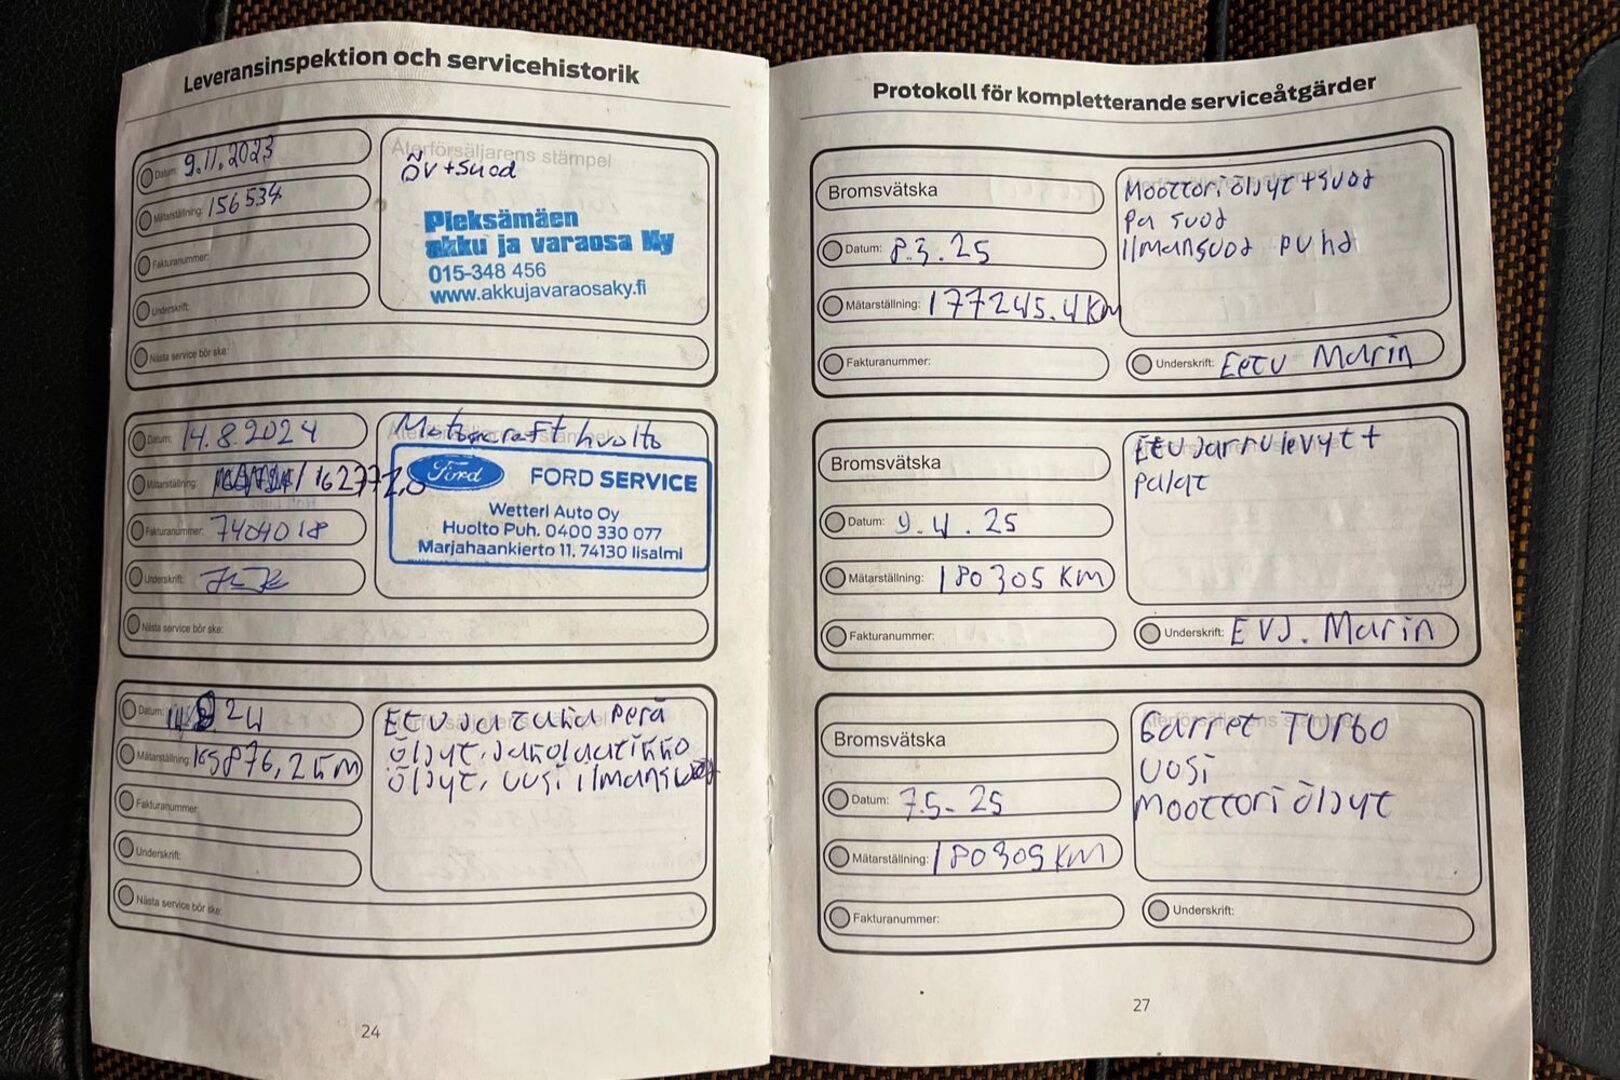 Leveransinspektion och servicehistorik
Datum: 9.11.2023
Mätarställning: 156534
Fakturanummer:
Underskrift:
Nästa service bör ske:
Återförsäljarens stämpel
ÖV+suod
Pieksämäen
akku ja varaosa Ky
015-348 456
www.akkujavaraosaky.fi
Datum: 14.8.2024
Mätarställning: / 162772,0
Fakturanummer: 7404018
Underskrift:
Nästa service bör ske:
Motorcraft huolto
Ford FORD SERVICE
Wetteri Auto Oy
Huolto Puh. 0400 330 077
Marjahaankierto 11, 74130 Iisalmi
Datum: 24
Mätarställning: 165876,2 km
Fakturanummer:
Underskrift:
Nästa service bör ske:
Etu ja taka perä
öljyt, jakolaatikko
öljyt, uusi ilmansuod
24
Protokoll för kompletterande serviceåtgärder
Bromsvätska
Datum: 8.3.25
Mätarställning: 177245.4 Km
Fakturanummer:
Moottoriöljyt+suod
Pa suod
Ilmansuod puhd
Underskrift: Eetu Marin
Bromsvätska
Datum: 9.4.25
Mätarställning: 180305 KM
Fakturanummer:
Etu Jarrulevyt +
palat
Underskrift: EVJ. Marin
Bromsvätska
Datum: 7.5-25
Mätarställning: 180309 KM
Fakturanummer:
Återförsäljarens stämpel
Garret TURBO
uosi
Moottori öljyt
Underskrift:
27